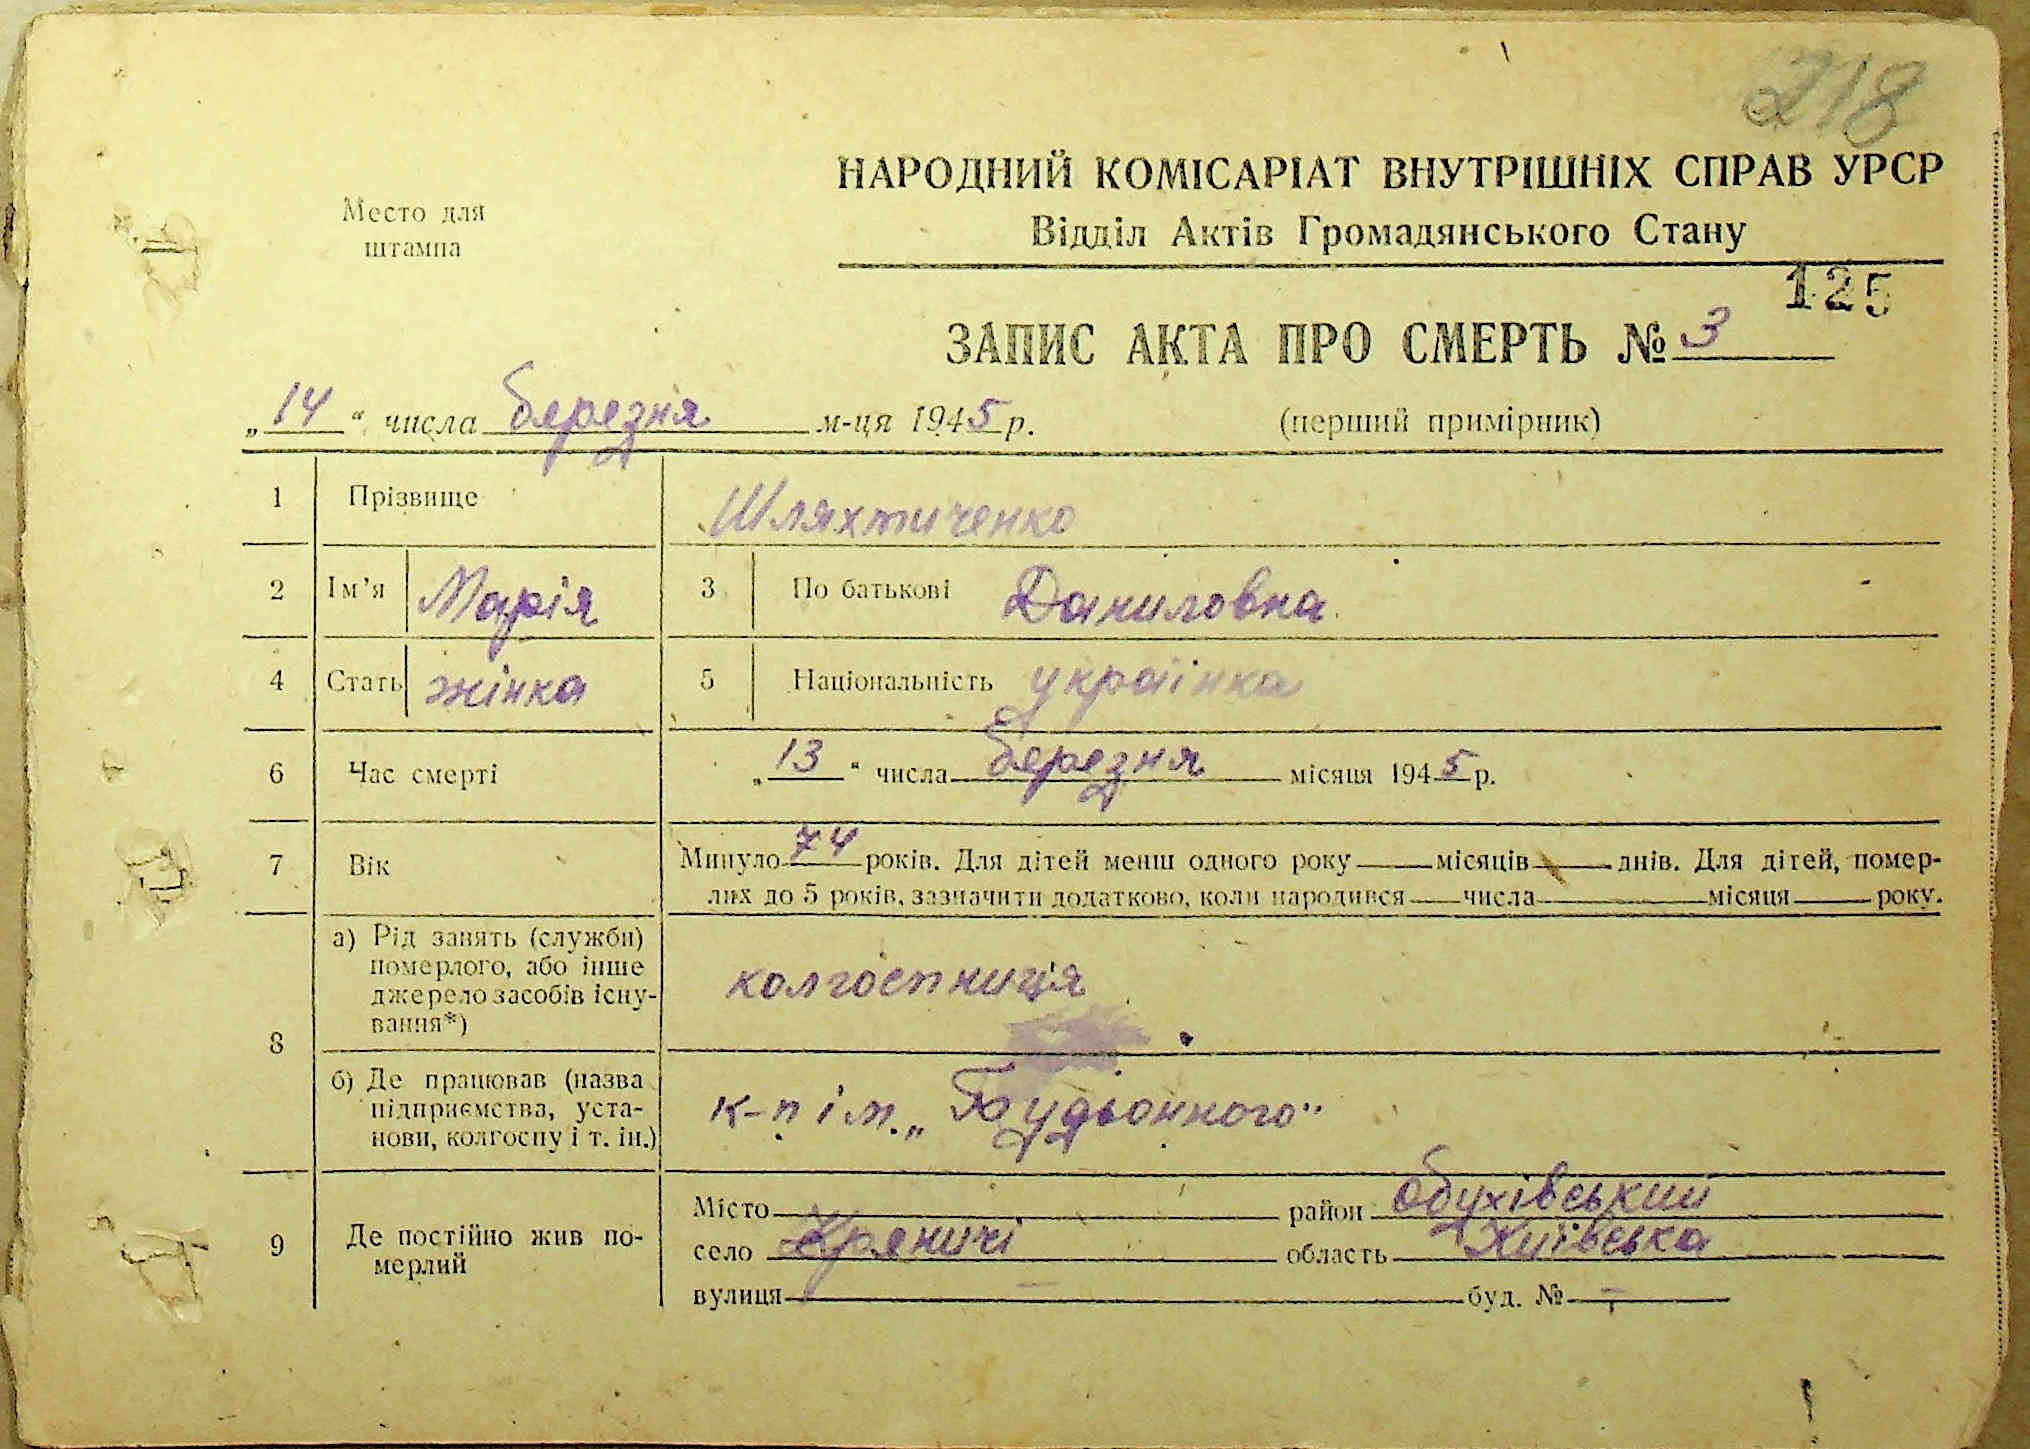 218
Место для
штампа
НАРОДНИЙ КОМІСАРІАТ ВНУТРІШНІХ СПРАВ УРСР
Відділ Актів Громадянського Стану
125
ЗАПИС АКТА ПРО СМЕРТЬ № 3
„14“ числа березня м-ця 1945 р. (перший примірник)
1 Прізвище Шляхтиченко
2 Ім'я Марія 3 По батькові Даниловна
4 Стать жінка 5 Національність українка
6 Час смерті „13“ числа березня місяця 1945 р.
7 Вік Минуло 74 років. Для дітей менш одного року місяців днів. Для дітей, помер-
лих до 5 років, зазначити додатково, коли народився числа місяця року.
8 а) Рід занять (служби)
померлого, або інше
джерело засобів існу-
вання*)
колгоспниця
б) Де працював (назва
підприємства, уста-
нови, колгоспу і т. ін.)
к-п ім. „Будьонного"
9 Де постійно жив по-
мерлий
Місто район Обухівський
село Креничі область Київська
вулиця — буд. № —